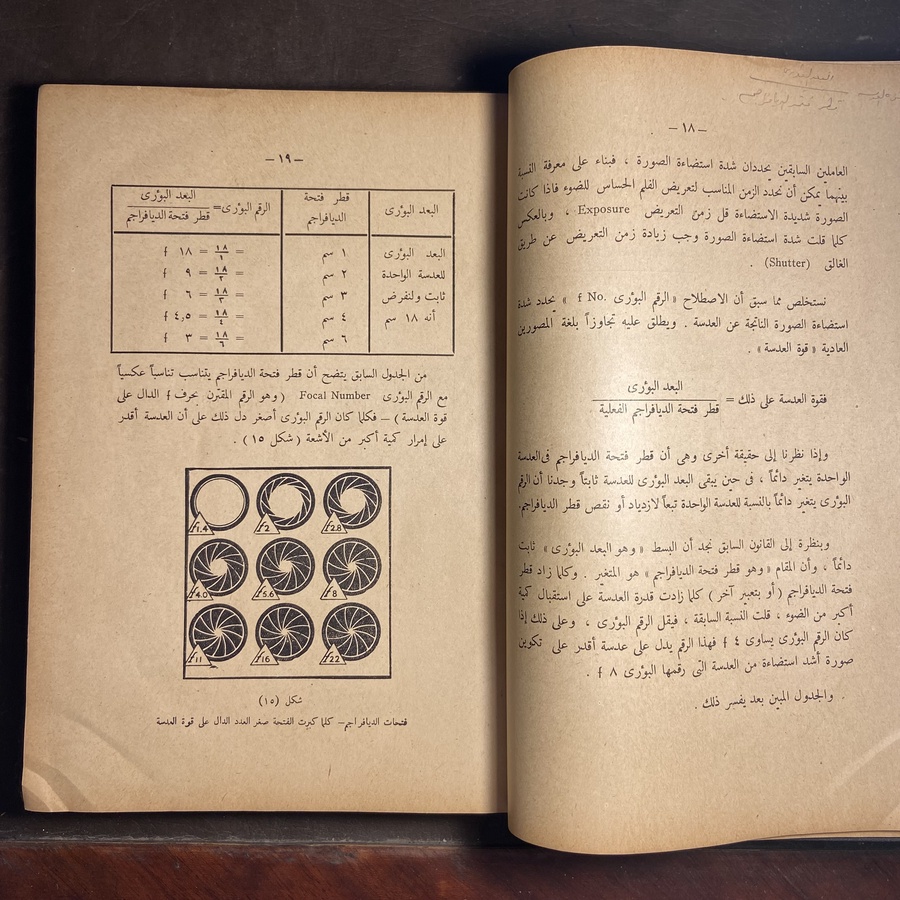 البعد البؤرى
قطر فتحة الديافراجم
— ١٨ —
العاملين السابقين يحددان شدة استضاءة الصورة ، فبناء على معرفة النسبة
بينهما يمكن أن نحدد الزمن المناسب لتعريض الفلم الحساس للضوء فاذا كانت
الصورة شديدة الاستضاءة قل زمن التعريض Exposure ، وبالعكس
كلما قلت شدة استضاءة الصورة وجب زيادة زمن التعريض عن طريق
الغالق (Shutter) .
نستخلص مما سبق أن الاصطلاح « الرقم البؤرى f No. » يحدد شدة
استضاءة الصورة الناتجة عن العدسة . ويطلق عليه تجاوزاً بلغة المصورين
العادية « قوة العدسة » .
البعد البؤرى
فقوة العدسة على ذلك =
قطر فتحة الديافراجم الفعلية
وإذا نظرنا إلى حقيقة أخرى وهى أن قطر فتحة الديافراجم فى العدسة
الواحدة يتغير دائماً ، فى حين يبقى البعد البؤرى للعدسة ثابتاً وجدنا أن الرقم
البؤرى يتغير دائماً بالنسبة للعدسة الواحدة تبعاً لازدياد أو نقص قطر الديافراجم.
وبنظرة إلى القانون السابق نجد أن البسط « وهو البعد البؤرى » ثابت
دائماً ، وأن المقام « وهو قطر فتحة الديافراجم » هو المتغير . وكلما زاد قطر
فتحة الديافراجم ( أو بتعبير آخر ) كلما زادت قدرة العدسة على استقبال كمية
أكبر من الضوء ، قلت النسبة السابقة ، فيقل الرقم البؤرى ، وعلى ذلك إذا
كان الرقم البؤرى يساوى ٤ f فهذا الرقم يدل على عدسة أقدر على تكوين
صورة أشد استضاءة من العدسة التى رقمها البؤرى ٨ f .
والجدول المبين بعد يفسر ذلك .
— ١٩ —
البعد البؤرى
قطر فتحة الديافراجم
الرقم البؤرى = البعد البؤرى / قطر فتحة الديافراجم
البعد البؤرى ١ سم = ١٨/١ = ١٨ f
للعدسة الواحدة ٢ سم = ١٨/٢ = ٩ f
ثابت ولنفرض ٣ سم = ١٨/٣ = ٦ f
أنه ١٨ سم ٤ سم = ١٨/٤ = ٤,٥ f
٦ سم = ١٨/٦ = ٣ f
من الجدول السابق يتضح أن قطر فتحة الديافراجم يتناسب تناسباً عكسياً
مع الرقم البؤرى Focal Number ( وهو الرقم المقترن بحرف f الدال على
قوة العدسة ) — فكلما كان الرقم البؤرى أصغر دل ذلك على أن العدسة أقدر
على إمرار كمية أكبر من الأشعة ( شكل ١٥ ) .
f1.4 f2 f2.8
f4.0 f5.6 f8
f11 f16 f22
شكل (١٥)
فتحات الديافراجم — كلما كبرت الفتحة صغر العدد الدال على قوة العدسة